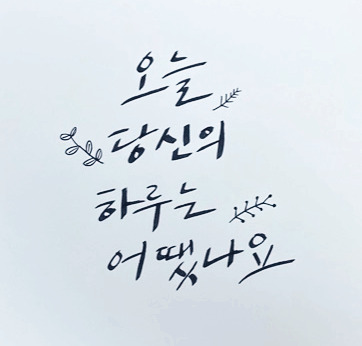 오늘
당신의
하루는
어땠나요